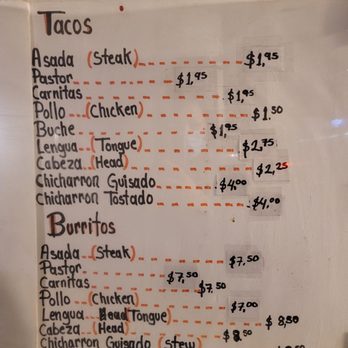 Tacos
Asada (Steak) $1,95
Pastor $1,95
Carnitas $1,95
Pollo (Chicken) $1.50
Buche $1,95
Lengua (Tongue) $2,75
Cabeza (Head) $2,25
Chicharron Guisado $4,00
Chicharron Tostado $4,00
Burritos
Asada (Steak) $7.50
Pastor $7,50
Carnitas $7.50
Pollo (Chicken) $7,00
Lengua (Tongue) $8,50
Cabeza (Head) $8,50
Chicharron Guisado (Stew)